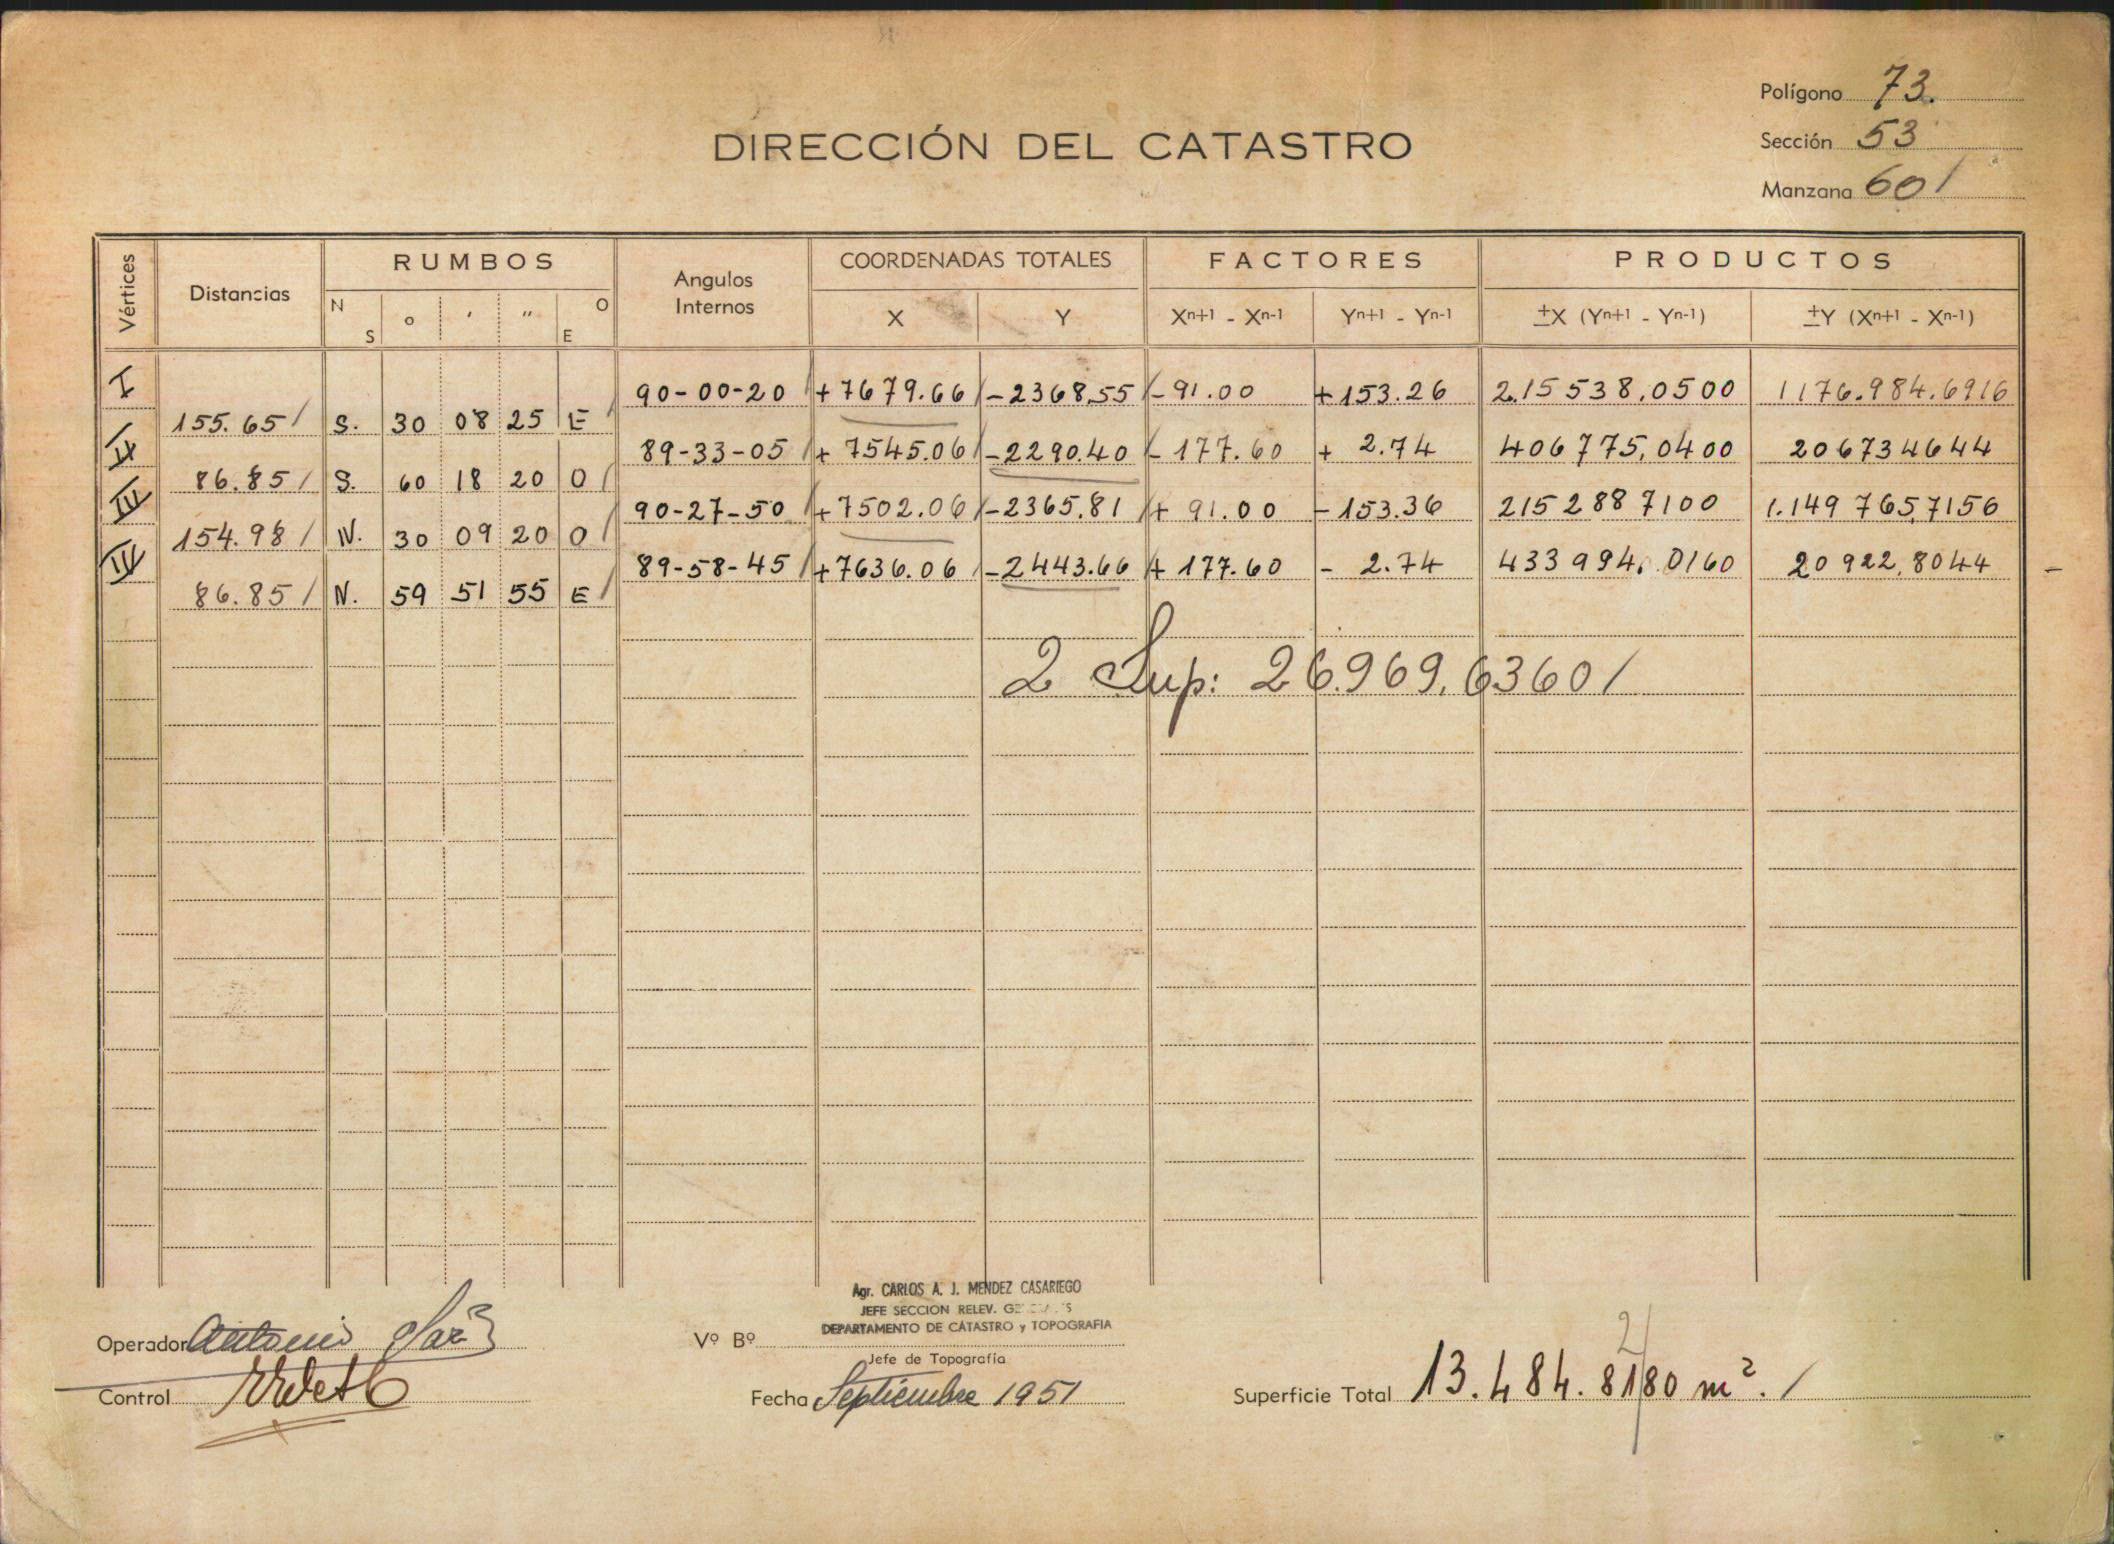 Polígono 73.
DIRECCIÓN DEL CATASTRO
Sección 53
Manzana 601
Vértices Distancias RUMBOS Angulos Internos COORDENADAS TOTALES FACTORES PRODUCTOS
N S ° ′ ″ O E X Y Xn+1 - Xn-1 Yn+1 - Yn-1 ±X (Yn+1 - Yn-1) ±Y (Xn+1 - Xn-1)
I 90-00-20 +7679.66 -2368,55 -91.00 +153.26 2.15538,0500 1176.984.6916
155.65 S. 30 08 25 E
II 89-33-05 +7545.06 -2290.40 -177.60 + 2.74 406775,0400 206734644
86.85 S. 60 18 20 O
III 90-27-50 +7502.06 -2365.81 + 91.00 -153.36 2152887100 1.149765,7156
154.98 N. 30 09 20 O
IV 89-58-45 +7636.06 -2443.66 + 177.60 - 2.74 433994,0160 20922,8044 -
86.85 N. 59 51 55 E
2 Sup: 26.969,6360
Agr. CARLOS A. J. MENDEZ CASARIEGO
JEFE SECCION RELEV.
DEPARTAMENTO DE CATASTRO y TOPOGRAFIA
Operador Antonio
Vº Bº
Jefe de Topografía
Control
Fecha Septiembre 1951
Superficie Total 13.484.8180 m². 2